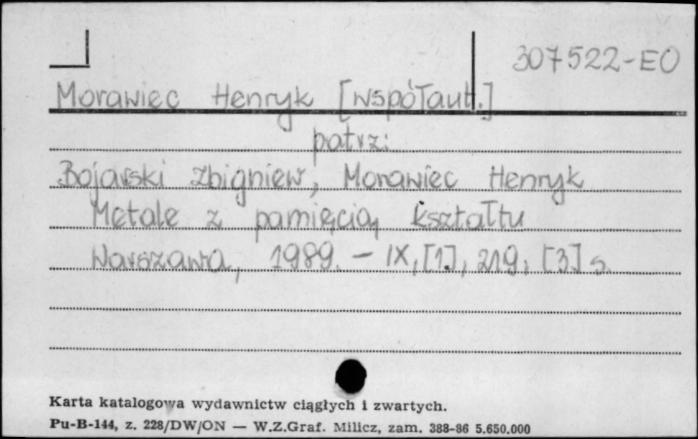 307522-EO
Morawiec Henryk [współaut.]
patrz:
Bojarski Zbigniew, Morawiec Henryk
Metale z pamięcią kształtu
Warszawa, 1989. - IX, [1], 219, [3] s.
Karta katalogowa wydawnictw ciągłych i zwartych.
Pu-B-144, z. 228/DW/ON — W.Z.Graf. Milicz, zam. 388-86 5.650.000